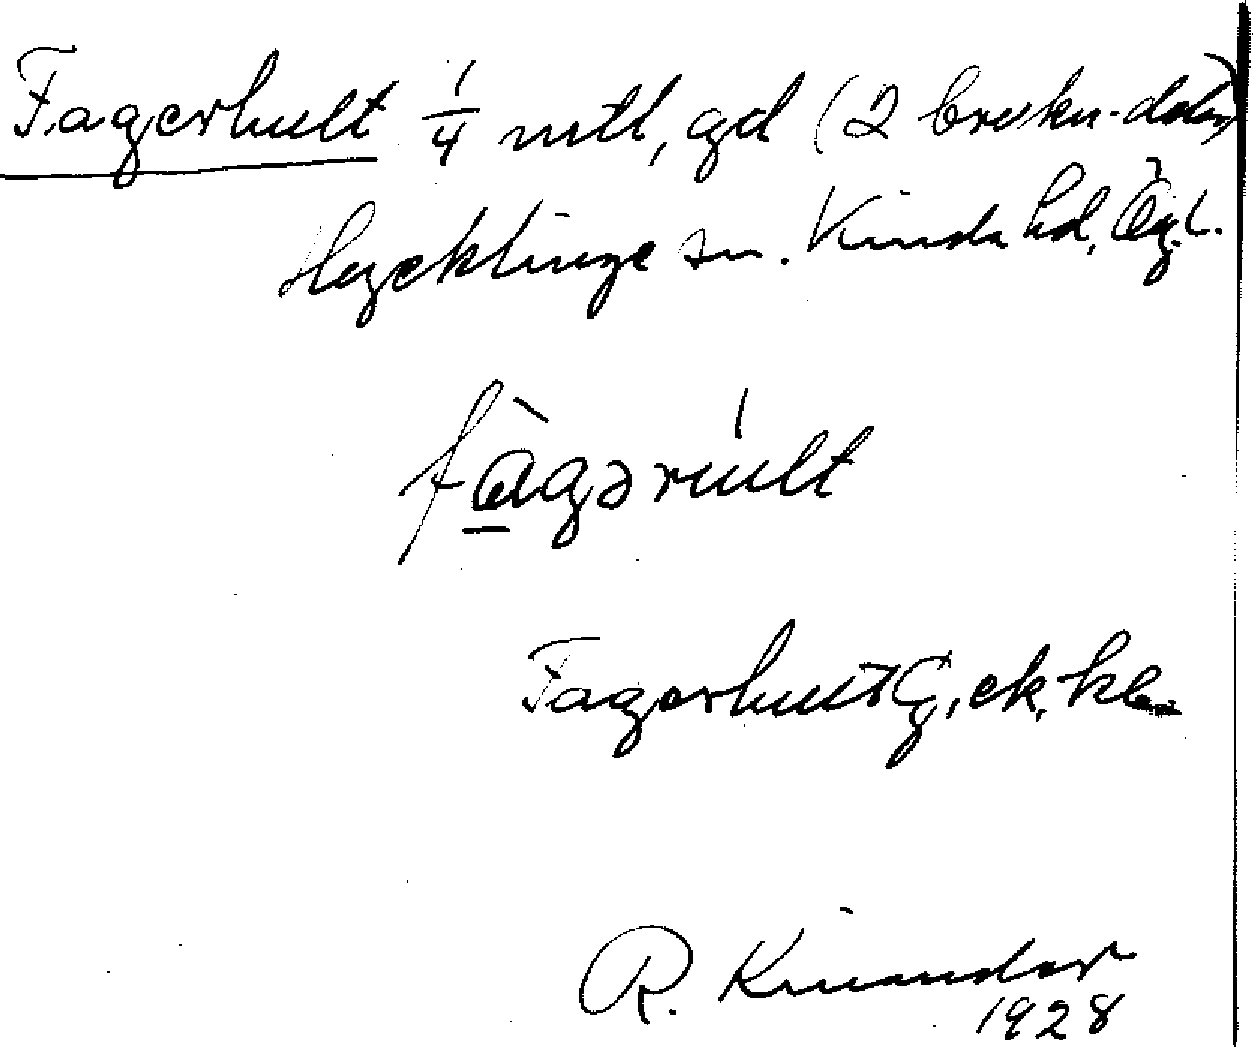 Fagerhult 1/4 mtl, gd (2 brukn.-delar)
Hycklinge sn. Kinda hd, Ög.l.
fàgərúlt
Fagerhult G, ek. kb.
R. Kinander
1928